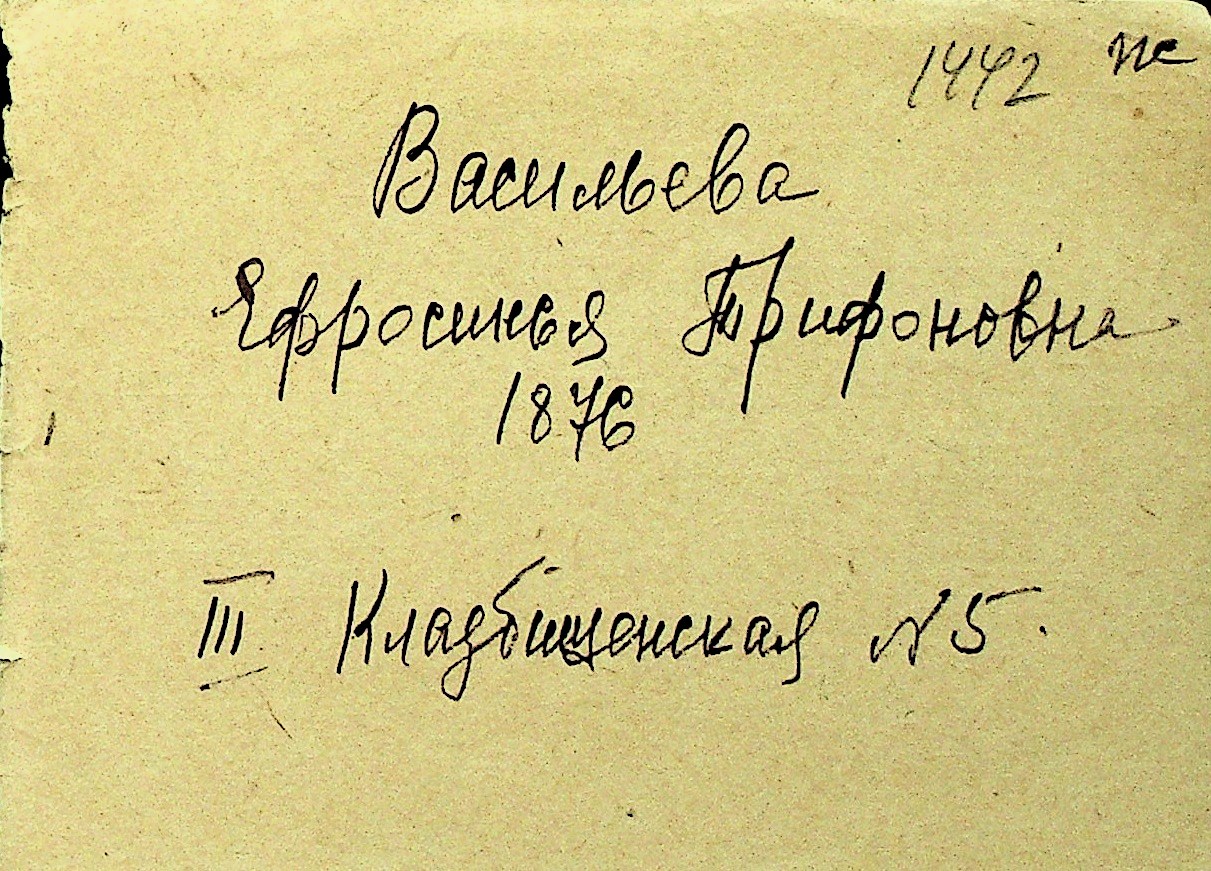 1442 ж
Васильева
Ефросинья Трифоновна
1876
III Кладбищенская N 5.